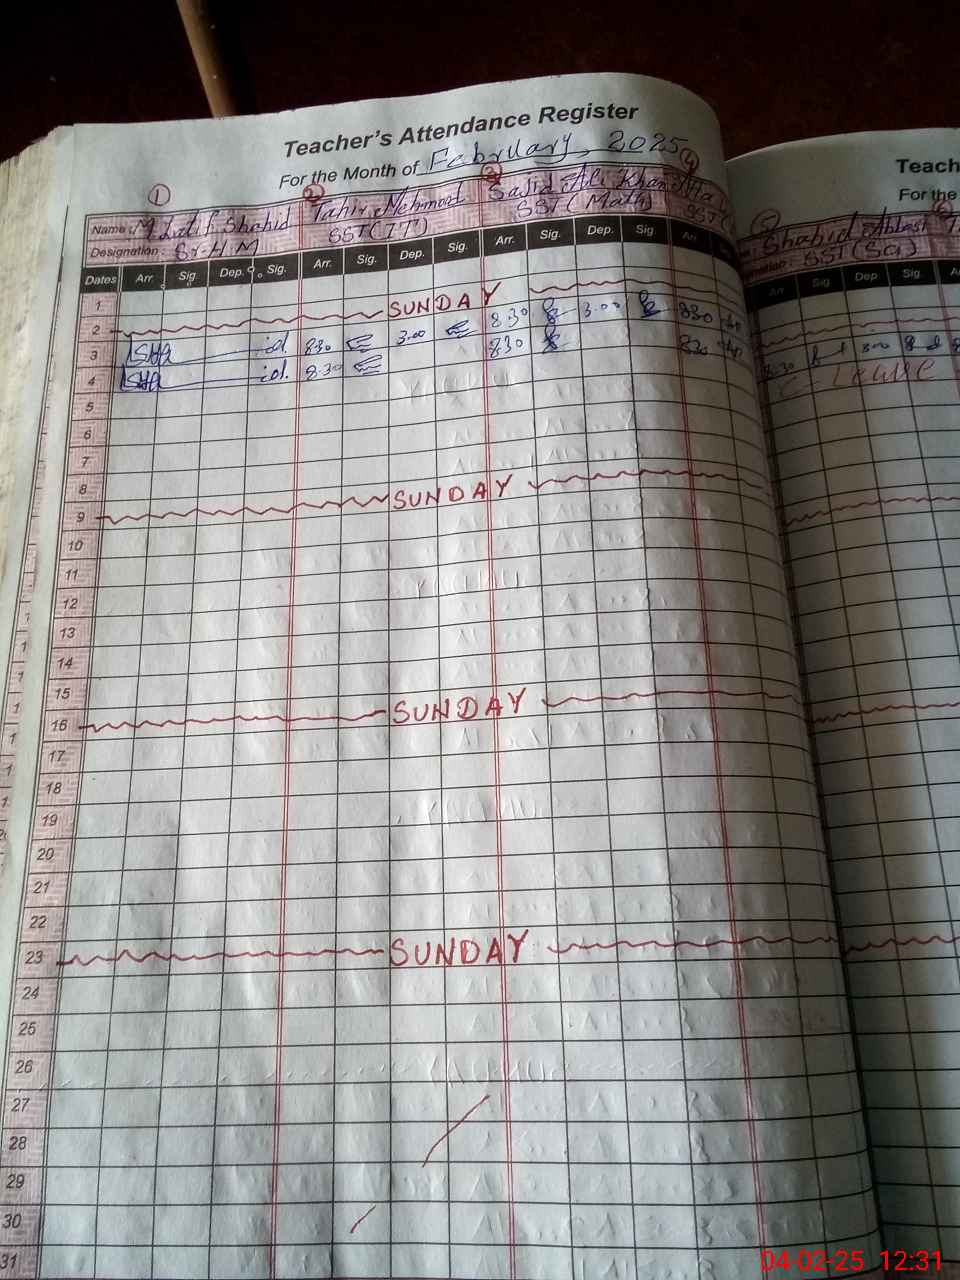 Teacher's Attendance Register
For the Month of February, 2025
Teach
For the
1 2 3 4
Name: M. Latif Shahid Tahir Mehmood Sajid Ali Khan
Designation: Sr-H.M SST(IT) SST(Math) SST
5
Shahid Abbas
nation: SST(Sci)
Dates Arr. Sig. Dep. Sig. Arr. Sig. Dep. Sig. Arr. Sig. Dep. Sig. Arr.
Arr Sig. Dep. Sig.
1
2 SUNDAY
3 8.30 3.00 8.30 3.00 8.30 8.30 3.00
4 8.30 8.30 8.30 C-Leave
5
6
7
8
9 SUNDAY
10
11
12
13
14
15
16 SUNDAY
17
18
19
20
21
22
23 SUNDAY
24
25
26
27
28
29
30
31
04-02-25 12:31